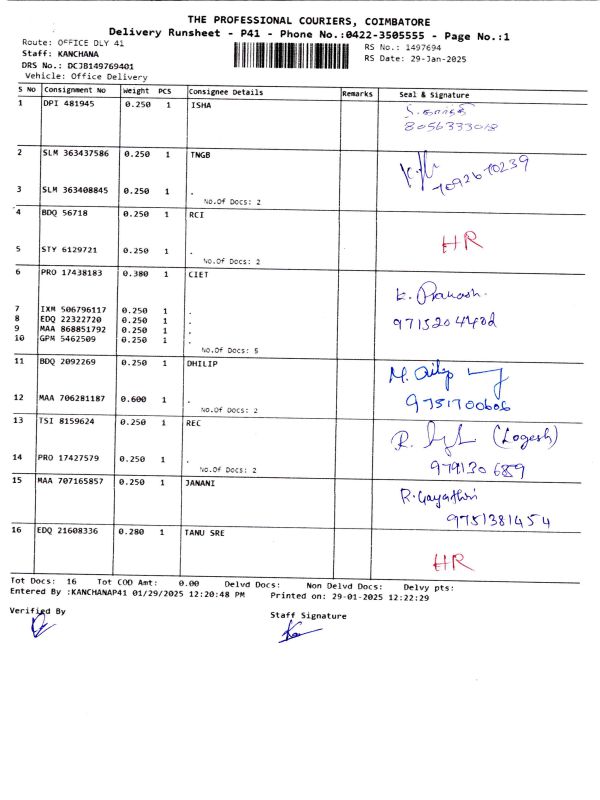 THE PROFESSIONAL COURIERS, COIMBATORE
Delivery Runsheet - P41 - Phone No.:0422-3505555 - Page No.:1
Route: OFFICE DLY 41
Staff: KANCHANA
DRS No.: DCJB149769401
Vehicle: Office Delivery
RS No.: 1497694
RS Date: 29-Jan-2025
S No Consignment No Weight PCS Consignee Details Remarks Seal & Signature
1 DPI 481945 0.250 1 ISHA
8056333018
2 SLM 363437586 0.250 1 TNGB
7092670239
3 SLM 363408845 0.250 1 .
No.Of Docs: 2
4 BDQ 56718 0.250 1 RCI
HR
5 STY 6129721 0.250 1 .
No.Of Docs: 2
6 PRO 17438183 0.380 1 CIET
K. Prakash.
7 IXM 506796117 0.250 1 .
8 EDQ 22322720 0.250 1 .
9715204402
9 MAA 868851792 0.250 1 .
10 GPM 5462509 0.250 1 .
No.Of Docs: 5
11 BDQ 2092269 0.250 1 DHILIP
M. Dilip
12 MAA 706281187 0.600 1 .
9751700606
No.Of Docs: 2
13 TSI 8159624 0.250 1 REC
R. (Logesh)
14 PRO 17427579 0.250 1 .
No.Of Docs: 2
979130689
15 MAA 707165857 0.250 1 JANANI
R. Gayathri
9751381454
16 EDQ 21608336 0.280 1 TANU SRE
HR
Tot Docs: 16 Tot COD Amt: 0.00 Delvd Docs: Non Delvd Docs: Delvy pts:
Entered By :KANCHANAP41 01/29/2025 12:20:48 PM Printed on: 29-01-2025 12:22:29
Verified By
Staff Signature